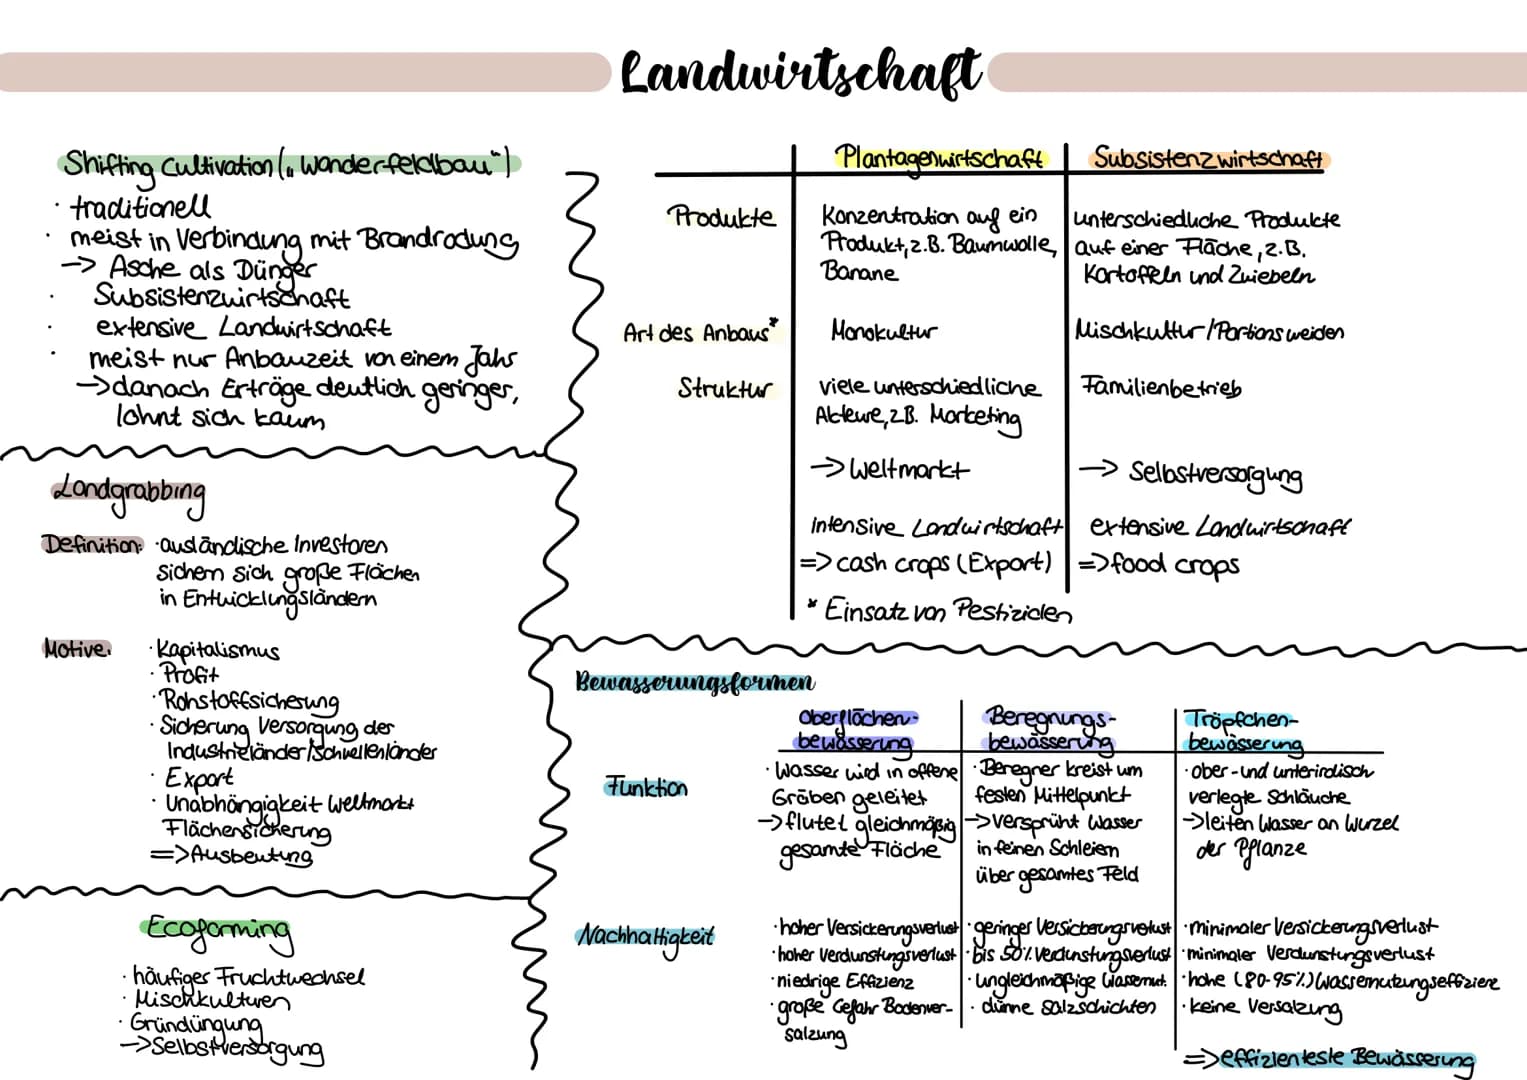 Landwirtschaft
Shifting Cultivation („Wanderfeldbau")
· traditionell
· meist in Verbindung mit Brandrodung
-> Asche als Dünger
· Subsistenzwirtschaft
· extensive Landwirtschaft
· meist nur Anbauzeit von einem Jahr
-> danach Erträge deutlich geringer,
lohnt sich kaum
Landgrabbing
Definition: · ausländische Investoren
sichern sich große Flächen
in Entwicklungsländern
Motive: · Kapitalismus
· Profit
· Rohstoffsicherung
· Sicherung Versorgung der
Industrieländer/Schwellenländer
· Export
· Unabhängigkeit Weltmarkt
Flächensicherung
=> Ausbeutung
Ecofarming
· häufiges Fruchtwechsel
· Mischkulturen
· Gründüngung
-> Selbstversorgung
Plantagenwirtschaft
Subsistenzwirtschaft
Produkte
Konzentration auf ein
Produkt, z.B. Baumwolle,
Banane
unterschiedliche Produkte
auf einer Fläche, z.B.
Kartoffeln und Zwiebeln
Art des Anbaus*
Monokultur
Mischkultur/Portionsweiden
Struktur
viele unterschiedliche
Akteure, z.B. Marketing
Familienbetrieb
-> Weltmarkt
-> Selbstversorgung
Intensive Landwirtschaft
extensive Landwirtschaft
=> cash crops (Export)
=> food crops
* Einsatz von Pestiziden
Bewässerungsformen
Oberflächen-
bewässerung
Beregnungs-
bewässerung
Tröpfchen-
bewässerung
Funktion
· Wasser wird in offene
Gräben geleitet
-> flutet gleichmäßig
gesamte Fläche
· Beregner kreist um
festen Mittelpunkt
-> versprüht Wasser
in feinen Schleiern
über gesamtes Feld
· ober- und unterirdisch
verlegte Schläuche
-> leiten Wasser an Wurzel
der Pflanze
Nachhaltigkeit
· hoher Versickerungsverlust
· hoher Verdunstungsverlust
· niedrige Effizienz
· große Gefahr Bodenver-
salzung
· geringer Versickerungsverlust
· bis 50% Verdunstungsverlust
· ungleichmäßige Wassernut.
· dünne Salzschichten
· minimaler Versickerungsverlust
· minimaler Verdunstungsverlust
· hohe (80-95%) Wassernutzungseffiziere
· keine Versalzung
=> effizienteste Bewässerung